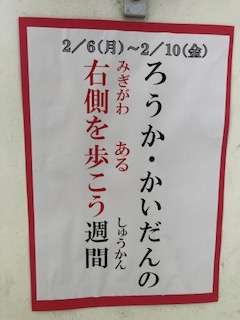 2/6(月)~2/10(金)
ろうか・かいだんの
みぎがわ ある しゅうかん
右側を歩こう週間